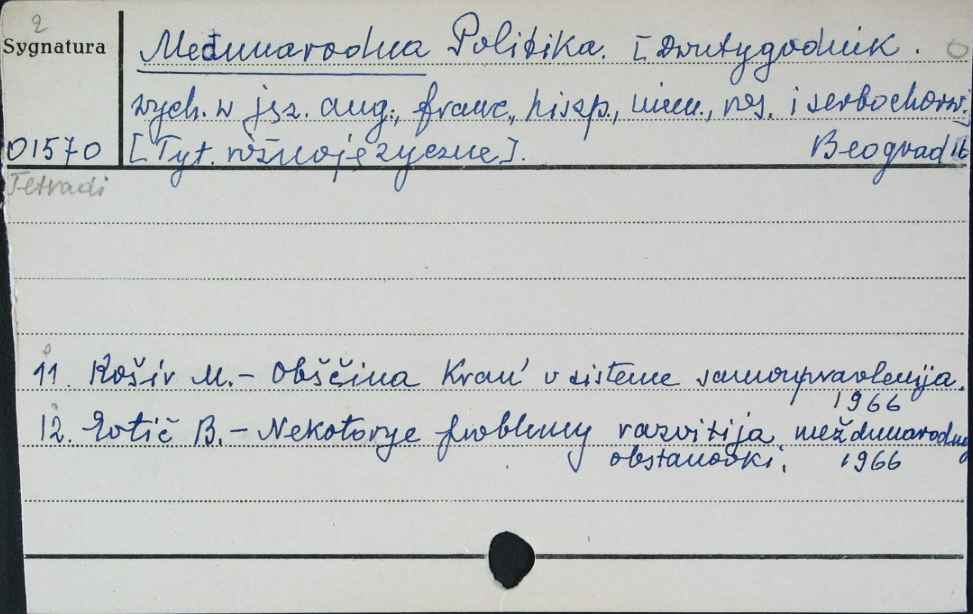 2
Sygnatura
Međunarodna Politika. [Dwutygodnik.
wych. w jęz. ang., franc., hiszp., niem., ros. i serbochorw.]
01570 [Tyt. różnojęzyczne]. Beograd
Tetradi
11. Košir M. - Obščina Kran' v sisteme samoupravlenija.
1966
12. B. - Nekotorye problemy razvitija meždunarodnoj
obstanovki. 1966